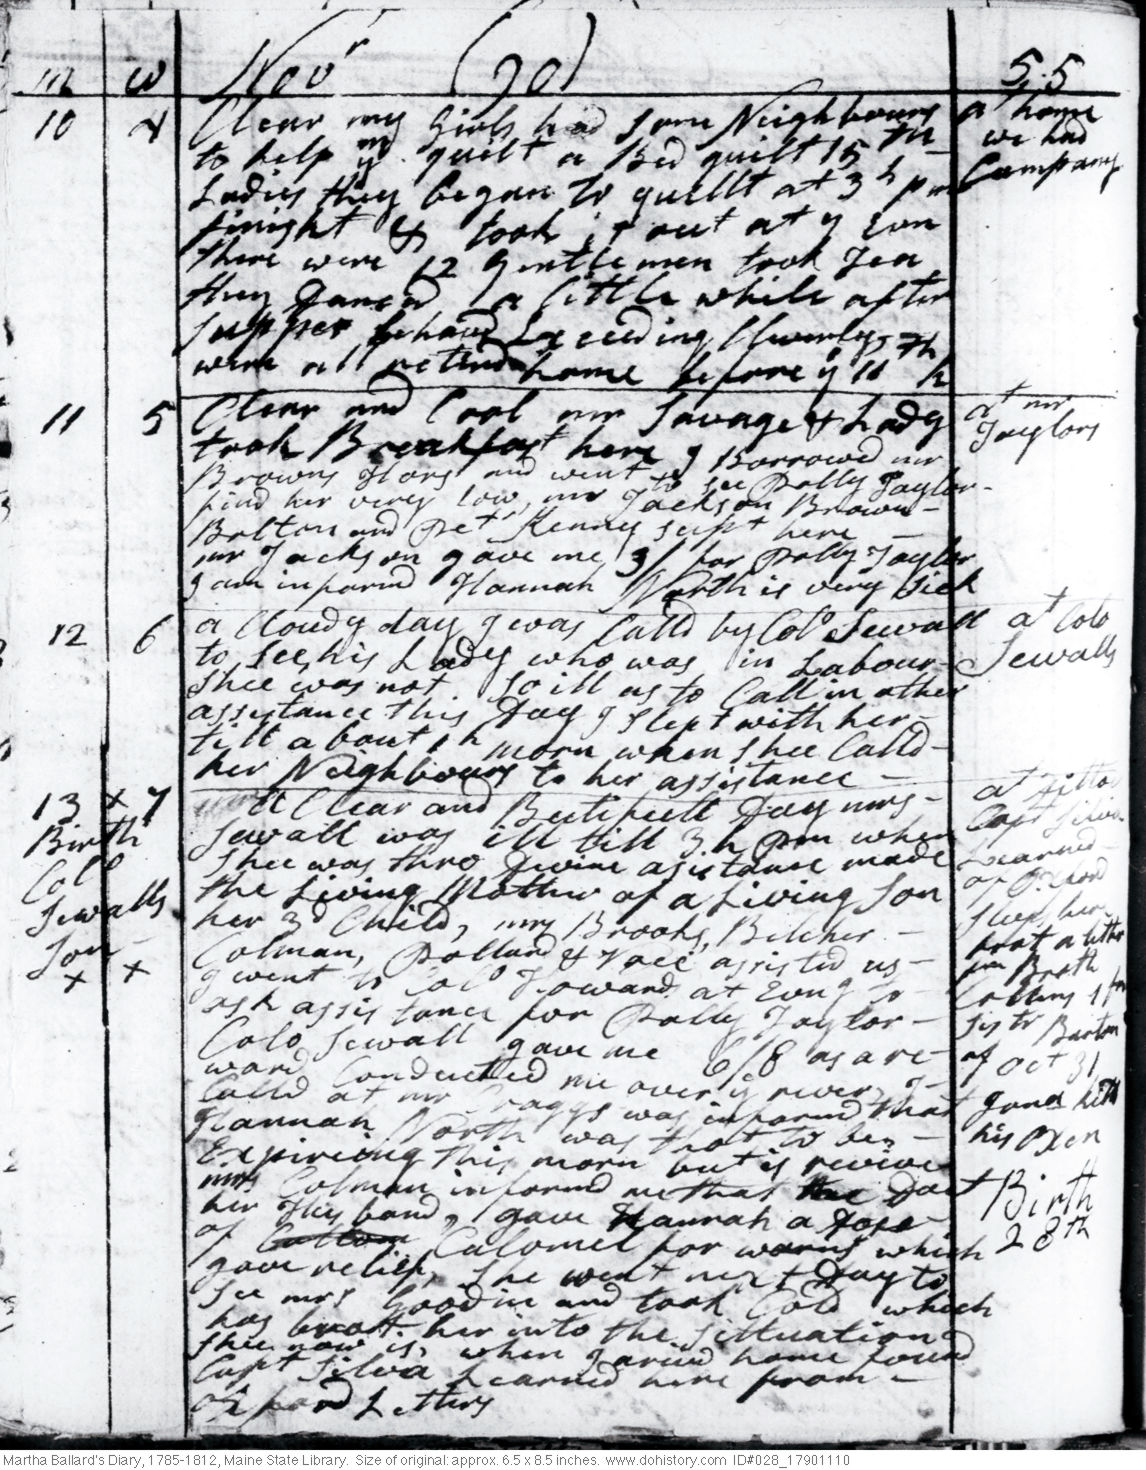 m w Novr (90) 55
10 4 Clear my Girls had some Neighbours
to help ym quilt a Bed quilt 15 in
Ladies they began to quillt at 3 h pm
finisht & took it out at 7 Evn
there were 12 Gentlemen took Tea
they Danced a little while after
supper behavd Exceeding Cleverly
were all returnd home before ye 11 h
at home
we had
Company
11 5 Clear and Cool mr Savage & Lady
took Breakfast here I Borrowed mr
Browns Hors and went to see Polly Taylor
find her very low, mr Jackson Brown
Bolton and Pet Kenny supt here
mr Jackson gave me 3/ for Polly Taylor
I am informd Hannah North is very sick
at mr
Taylors
12 6 a Cloudy day I was Calld by Colo Sewall
to see his Lady who was in Labour
Shee was not So ill as to Call in other
assistance this Day I slept with her
till about 1 h morn when shee Calld
her Neighbours to her assistance
at Colo
Sewalls
13 x 7 a Clear and Beutifull Day mrs
Sewall was ill till 3 h pm when
shee was thro Divine asistance made
the Living Mother of a Living Son
her 3d Child, mrs Brooks, Belcher
Colman, Pollard & Voce assisted us
I went to Colo Howard at Evng to
ask assistance for Polly Taylor
Colo Sewall gave me 6/8 as a re-
ward Conducted me over ye river I
Calld at mr Craggs was informd that
Hannah North was thot to be
Expireing this morn but is revivd
mrs Colman informd me that Doct
her Husband, gave Hannah a Dose
of Calomel for worms which
gave relief, She went next Day to
See mrs Goodin and took Cold which
has brot her into the Sittuation
shee now is, when I arivd home found
Capt Silva Learned here from
oxford Letters
Birth
Colo
Sewalls
Son
x x
at Ditto
Capt Silva
Learned
of oxford
sleep here
brot a letter
fm Broth
Collins 1 fm
sistr Barton
of oct 31
gone with
his oxen
Birth
28th
Martha Ballard's Diary, 1785-1812, Maine State Library. Size of original: approx. 6.5 x 8.5 inches. www.dohistory.com ID#028_17901110